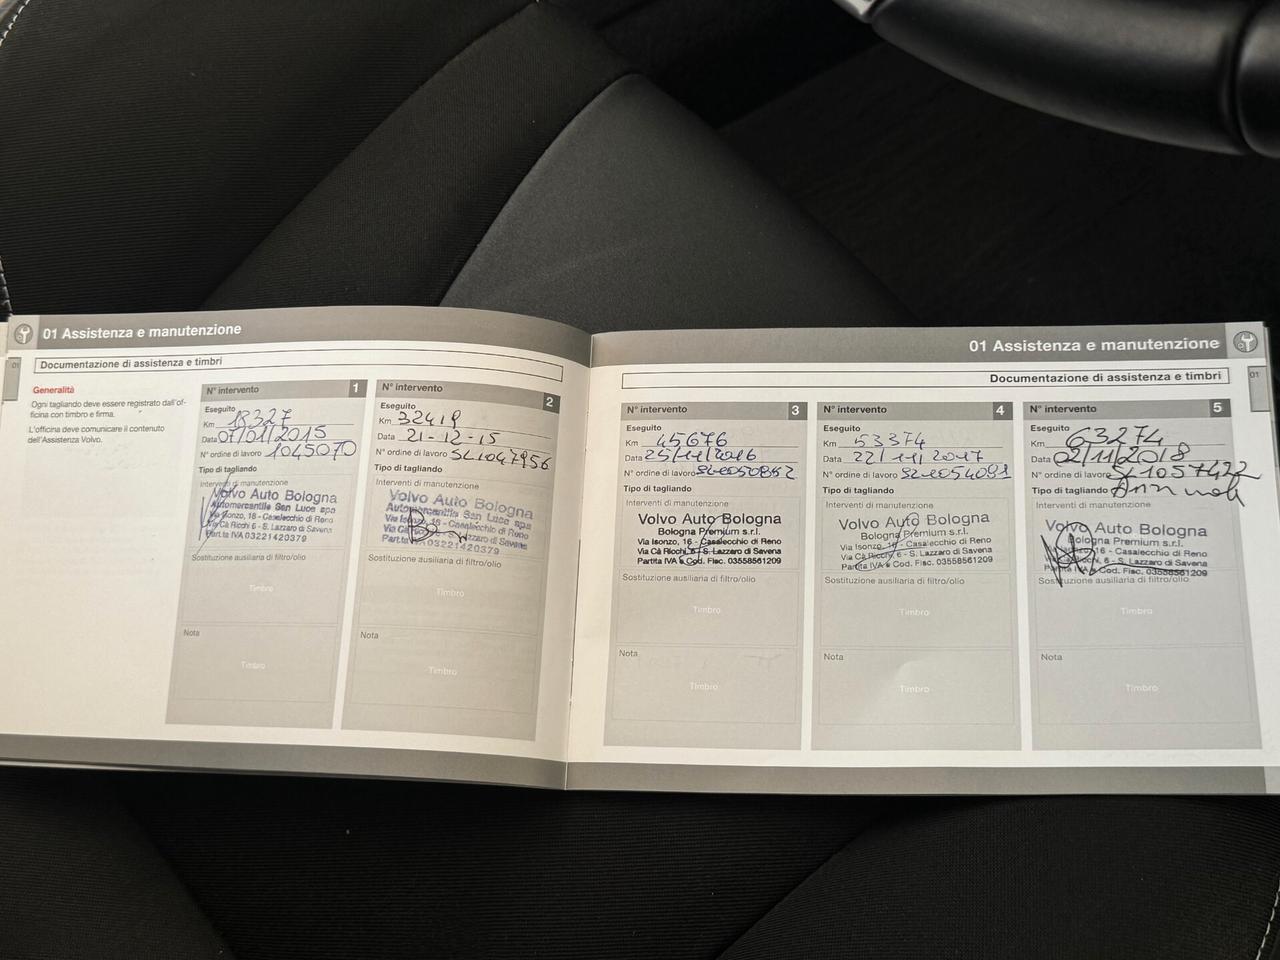 01 Assistenza e manutenzione
01
Documentazione di assistenza e timbri
Generalità
Ogni tagliando deve essere registrato dall'of-
ficina con timbro e firma.
L'officina deve comunicare il contenuto
dell'Assistenza Volvo.
N° intervento 1
Eseguito
Km 18327
Data 07/01/2015
N° ordine di lavoro 1045070
Tipo di tagliando
Interventi di manutenzione
Volvo Auto Bologna
Automercantile San Luca spa
Via Isonzo, 16 - Casalecchio di Reno
Via Cà Ricchi 6 - S. Lazzaro di Savena
Part.ta IVA 03221420379
Sostituzione ausiliaria di filtro/olio
Timbro
Nota
Timbro
N° intervento 2
Eseguito
Km 32419
Data 21-12-15
N° ordine di lavoro SL1047956
Tipo di tagliando
Interventi di manutenzione
Volvo Auto Bologna
Automercantile San Luca spa
Via Isonzo, 16 - Casalecchio di Reno
Via Cà Ricchi 6 - S. Lazzaro di Savena
Part.ta IVA 03221420379
Sostituzione ausiliaria di filtro/olio
Timbro
Nota
Timbro
01 Assistenza e manutenzione
Documentazione di assistenza e timbri
01
N° intervento 3
Eseguito
Km 45676
Data 25/11/2016
N° ordine di lavoro
Tipo di tagliando
Interventi di manutenzione
Volvo Auto Bologna
Bologna Premium s.r.l.
Via Isonzo, 16 - Casalecchio di Reno
Via Cà Ricchi, 6 - S. Lazzaro di Savena
Partita IVA e Cod. Fisc. 03558561209
Sostituzione ausiliaria di filtro/olio
Timbro
Nota
Timbro
N° intervento 4
Eseguito
Km 53374
Data 22/11/2017
N° ordine di lavoro
Tipo di tagliando
Interventi di manutenzione
Volvo Auto Bologna
Bologna Premium s.r.l.
Via Isonzo, 16 - Casalecchio di Reno
Via Cà Ricchi, 6 - S. Lazzaro di Savena
Partita IVA e Cod. Fisc. 03558561209
Sostituzione ausiliaria di filtro/olio
Timbro
Nota
Timbro
N° intervento 5
Eseguito
Km 63274
Data 02/11/2018
N° ordine di lavoro SL1057422
Tipo di tagliando Annuale
Interventi di manutenzione
Volvo Auto Bologna
Bologna Premium s.r.l.
Via Isonzo, 16 - Casalecchio di Reno
Via Cà Ricchi, 6 - S. Lazzaro di Savena
Partita IVA e Cod. Fisc. 03558561209
Sostituzione ausiliaria di filtro/olio
Timbro
Nota
Timbro